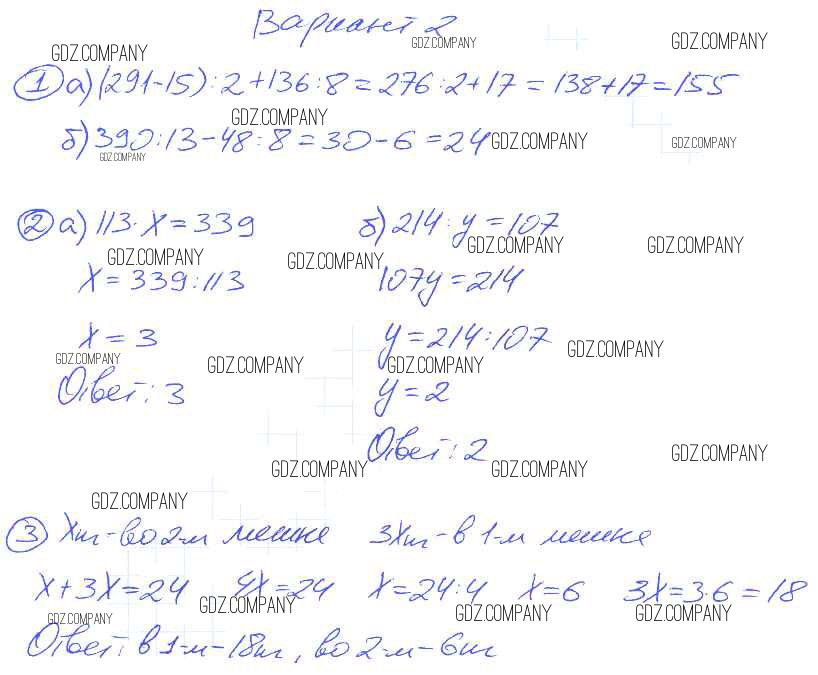 Вариант 2
GDZ.COMPANY GDZ.COMPANY GDZ.COMPANY
① а) (291-15):2+136:8=276:2+17=138+17=155
GDZ.COMPANY
б) 390:13-48:8=30-6=24 GDZ.COMPANY GDZ.COMPANY
GDZ.COMPANY
② а) 113·х=339 б) 214:у=107
GDZ.COMPANY GDZ.COMPANY GDZ.COMPANY GDZ.COMPANY
х=339:113 107у=214
х=3 у=214:107
GDZ.COMPANY GDZ.COMPANY GDZ.COMPANY GDZ.COMPANY
Ответ: 3 у=2
Ответ: 2
GDZ.COMPANY GDZ.COMPANY GDZ.COMPANY
GDZ.COMPANY
③ Хкг-во 2-м мешке 3Хкг-в 1-м мешке
х+3х=24 4х=24 х=24:4 х=6 3х=3·6=18
GDZ.COMPANY GDZ.COMPANY GDZ.COMPANY GDZ.COMPANY
Ответ: в 1-м-18кг, во 2-м-6кг